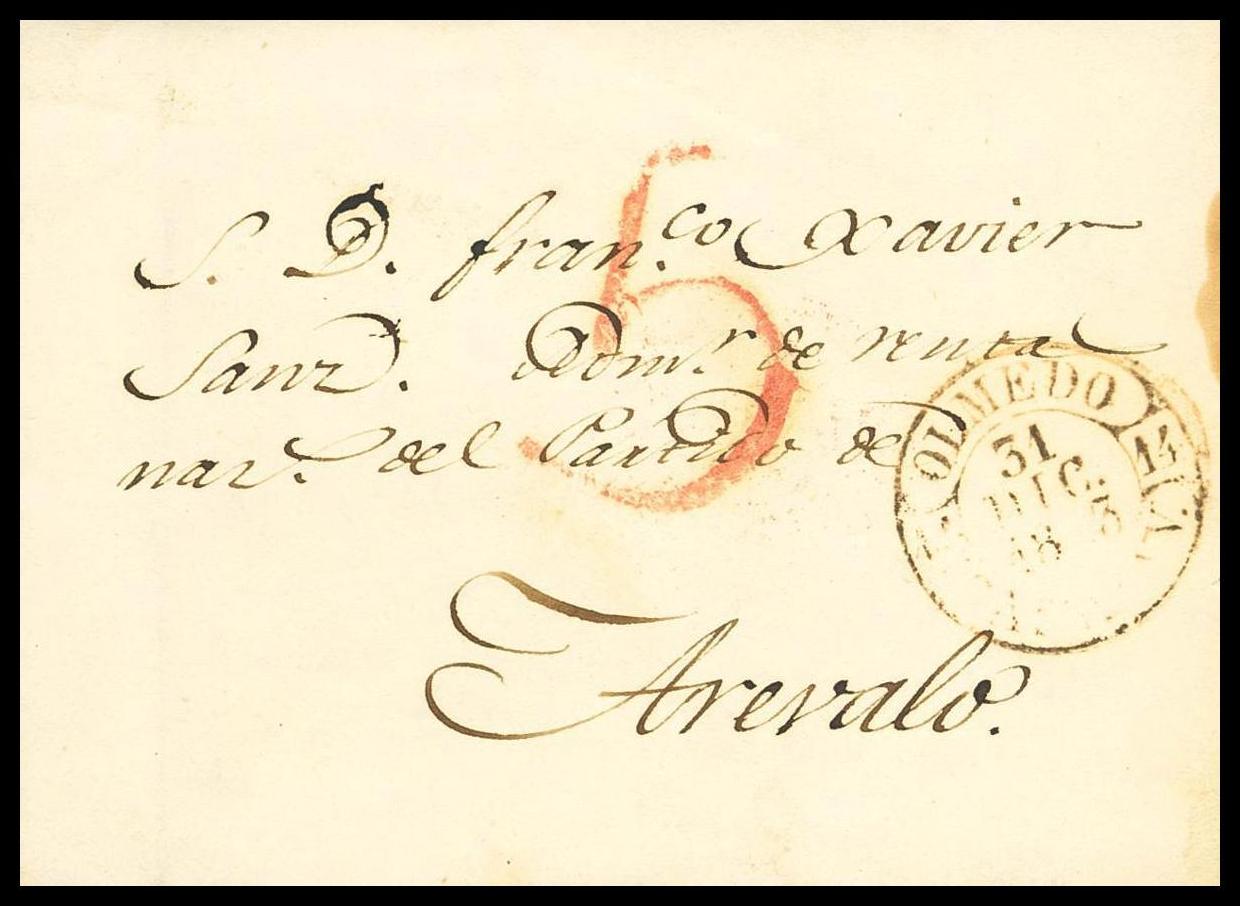 S. D. Fran.co Xavier
Sanz.Adom.r de renta
nac.s del Partido de
Arevalo.
5
OLMEDO 14
31
DIC.
18